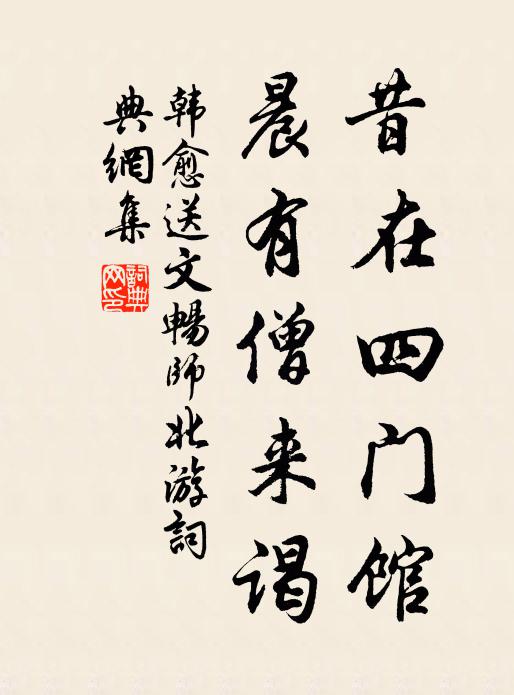 昔在四门馆
晨有僧来谒
韩愈送文暢师北游詞
典網集
詞典网印